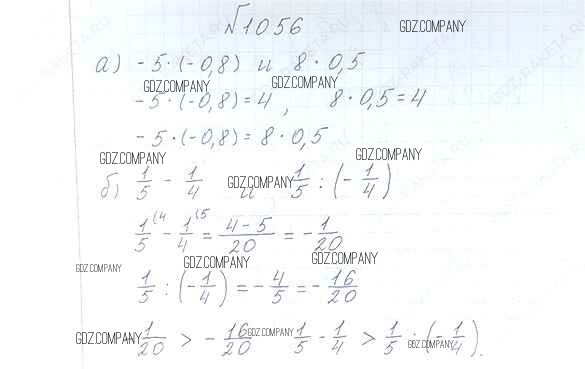 №1056
GDZ.COMPANY
а) -5·(-0,8) и 8·0,5
GDZ.COMPANY GDZ.COMPANY
-5·(-0,8)=4, 8·0,5=4
-5·(-0,8)=8·0,5
GDZ.COMPANY GDZ.COMPANY
б) 1/5 - 1/4 и 1/5 : (-1/4)
GDZ.COMPANY
1/5 (4 - 1/4 (5 = 4-5/20 = -1/20
GDZ.COMPANY GDZ.COMPANY GDZ.COMPANY
1/5 : (-1/4) = -4/5 = -16/20
GDZ.COMPANY GDZ.COMPANY GDZ.COMPANY
-1/20 > -16/20 1/5 - 1/4 > 1/5 : (-1/4).